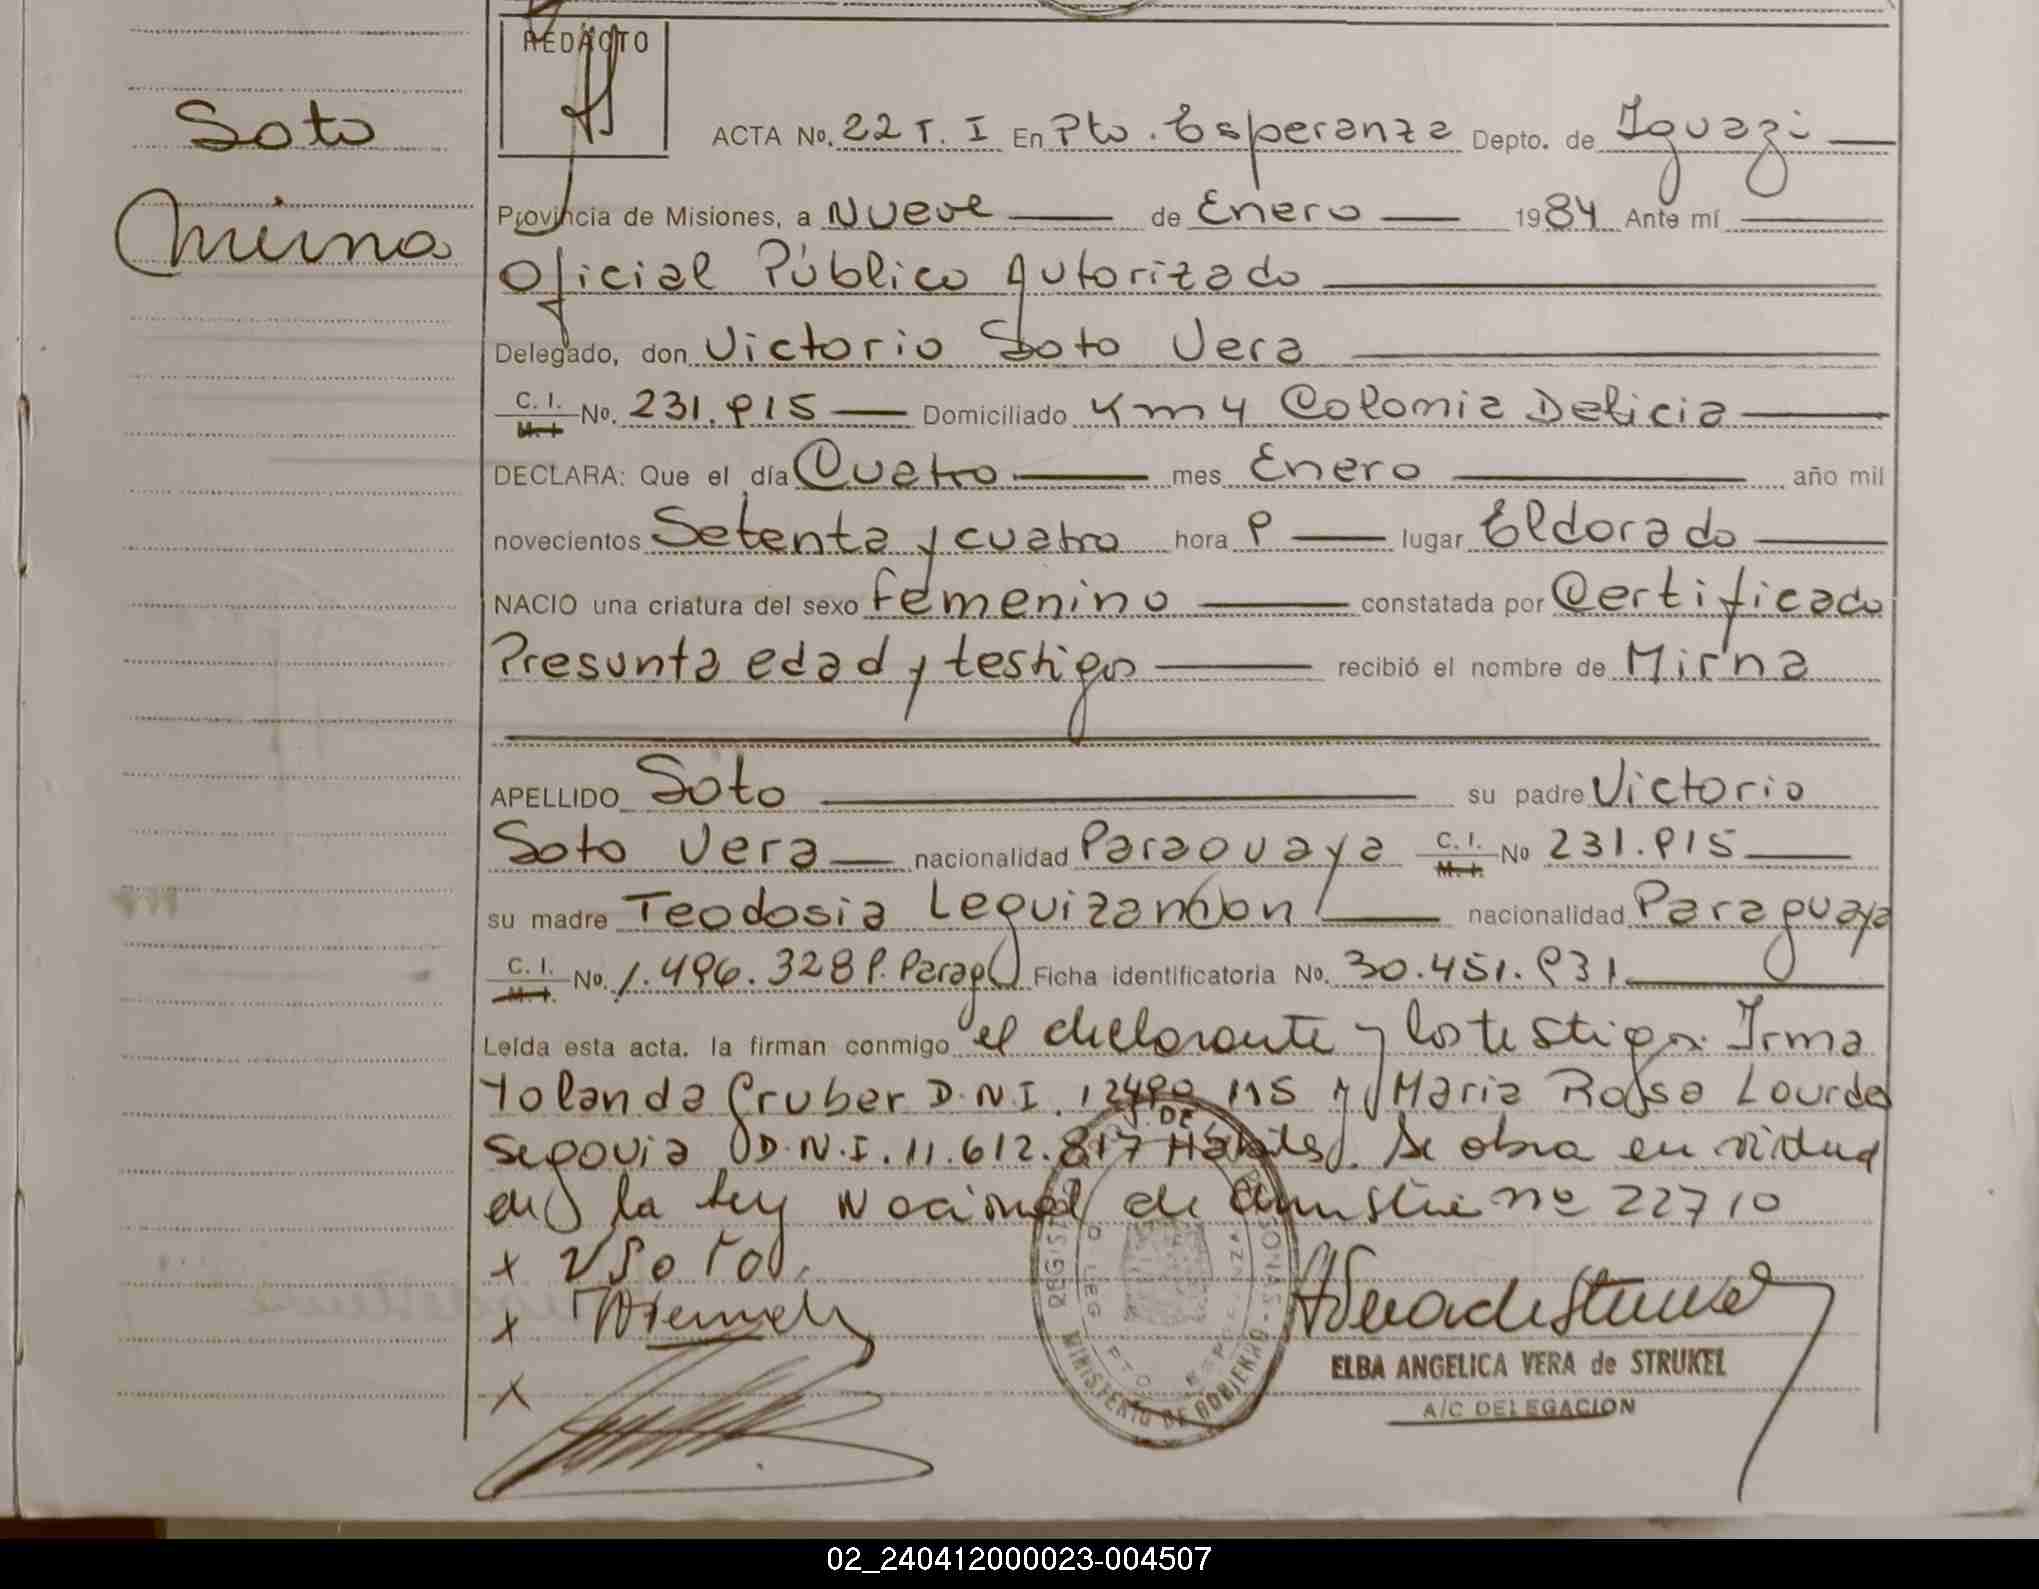 REDACTO
Soto
Mirna
ACTA No. 22 T. I En Pto. Esperanza Depto. de Iguazú
Provincia de Misiones, a Nueve de Enero 1984 Ante mí
Oficial Público Autorizado
Delegado, don Victorio Soto Vera
C. I. M. I. No. 231.915 Domiciliado Km 4 Colonia Delicia
DECLARA: Que el día Cuatro mes Enero año mil
novecientos Setenta y cuatro hora 9 lugar Eldorado
NACIO una criatura del sexo femenino constatada por Certificado
Presunta edad y testigos recibió el nombre de Mirna
APELLIDO Soto su padre Victorio
Soto Vera nacionalidad Paraguaya C. I. M. I. No 231.915
su madre Teodosia Leguizamon nacionalidad Paraguaya
C. I. M. I. No. 1.496.328 P. Parag Ficha identificatoria No. 30.451.931
Leída esta acta. la firman conmigo el declarante y los testigos Irma
Yolanda Gruber D.N.I. 12490 115 y Maria Rosa Lourdes
Segovia D.N.I. 11.612.817 Hábiles. Se obra en virtud
de la ley Nacional de amnistia nº 22710
x VSoto
x
x
MINISTERIO DE GOBIERNO
ELBA ANGELICA VERA de STRUKEL
A/C DELEGACION
02_240412000023-004507